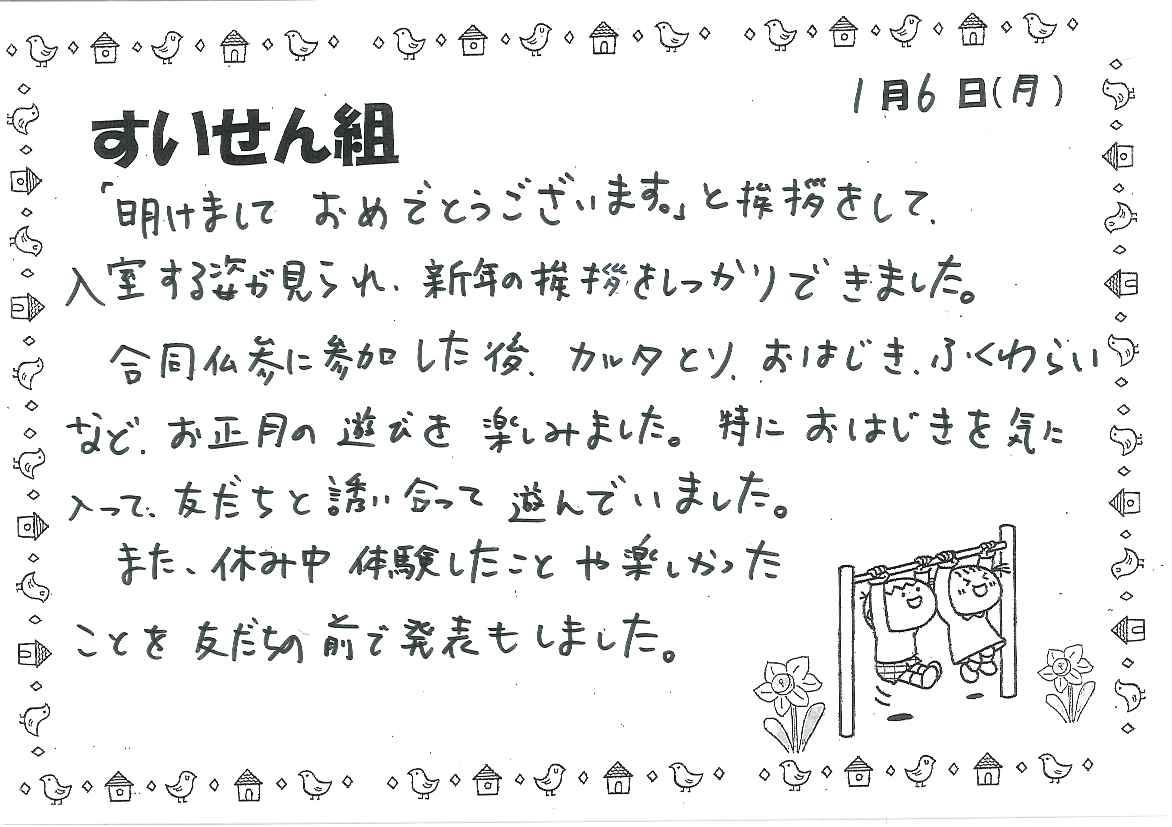 1月6日(月)
すいせん組
「明けまして おめでとうございます。」と挨拶をして、
入室する姿が見られ、新年の挨拶をしっかりできました。
合同仏参に参加した後、カルタとり、おはじき、ふくわらい
など、お正月の遊びを楽しみました。特におはじきを気に
入って、友だちと誘い合って遊んでいました。
また、休み中体験したことや楽しかった
ことを友だちの前で発表もしました。